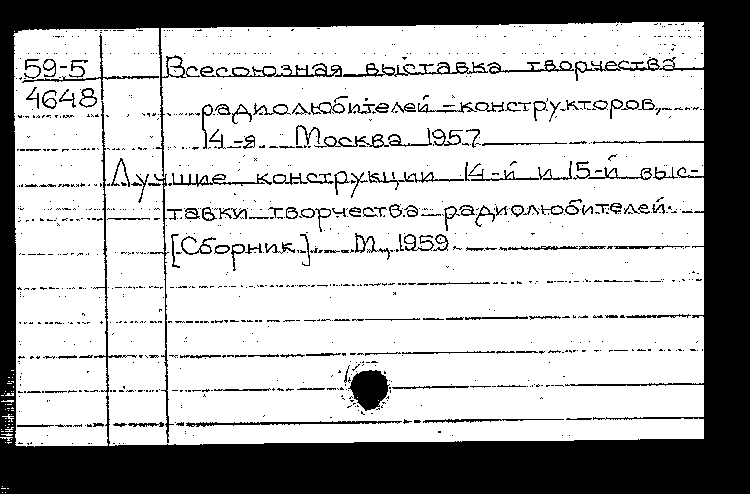 59-5 Всесоюзная выставка творчества
4648 радиолюбителей-конструкторов,
14-я. Москва. 1957
Лучшие конструкции 14-й и 15-й выс-
тавки творчества радиолюбителей.
[Сборник]. М., 1959.